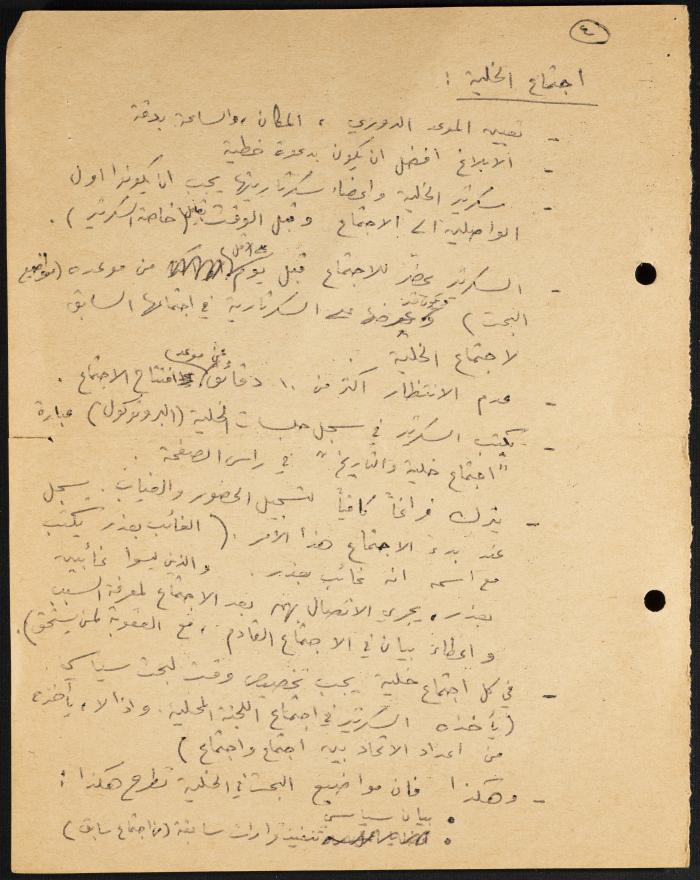 ٤
اجتماع الخلية :
- تعيين الموعد الدوري ، المكان ، والساعة بدقة
- الابلاغ افضل ان يكون بدعوة خطية
- سكرتير الخلية واعضاء سكرتاريتها يجب ان يكونوا اول
الواصلين الى الاجتماع وقبل الوقت بقليل (خاصة السكرتير) .
- السكرتير يحضّر للاجتماع قبل يوم على الاقل من موعده (مواضيع
البحث) على السكرتارية في اجتماعها السابق
لاجتماع الخلية .
- عدم الانتظار اكثر من ١٠ دقائق عن موعد افتتاح الاجتماع .
- يكتب السكرتير في سجل جلسات الخلية (البروتوكول) عبارة
"اجتماع خلية والتاريخ" في راس الصفحة .
- يترك فراغاً كافياً لتسجيل الحضور والغياب . يسجل
عند بدء الاجتماع هذا الأمر . (الغائب بعذر يكتب
مع اسمه انه غائب بعذر . والذين ليسوا غائبين
بعذر ، يجري الاتصال بهم بعد الاجتماع لمعرفة السبب
واعطاء بيان في الاجتماع القادم ، مع العقوبة لمن يستحق) .
- في كل اجتماع خلية يجب تخصيص وقت لبحث سياسي
(يأخذه السكرتير في اجتماع اللجنة المحلية . واذا لا ، يأخذه
من اعداد الاتحاد بين اجتماع واجتماع)
- وهكذا فان مواضيع البحث في الخلية تطرح هكذا :
• بيان سياسي
• تنفيذ قرارات سابقة (من اجتماع سابق)